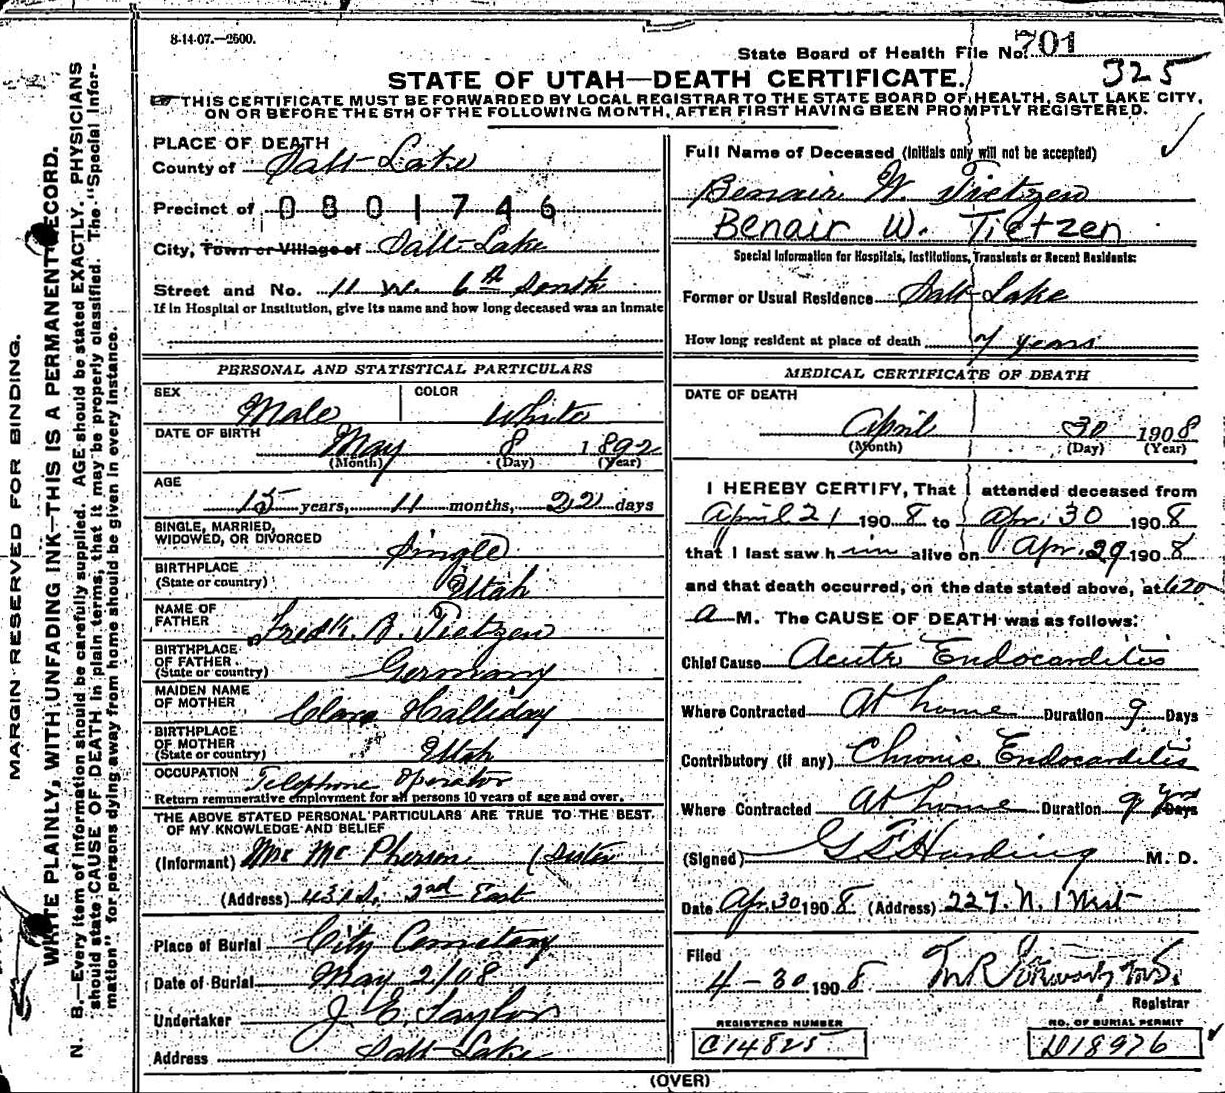 8-14-07.—2500.
State Board of Health File No. 701
325
STATE OF UTAH—DEATH CERTIFICATE.
THIS CERTIFICATE MUST BE FORWARDED BY LOCAL REGISTRAR TO THE STATE BOARD OF HEALTH, SALT LAKE CITY,
ON OR BEFORE THE 5TH OF THE FOLLOWING MONTH, AFTER FIRST HAVING BEEN PROMPTLY REGISTERED.
PLACE OF DEATH
County of Salt Lake
Precinct of 0801746
City, Town or Village of Salt Lake
Street and No. 11 W. 6th South
If in Hospital or Institution, give its name and how long deceased was an inmate
PERSONAL AND STATISTICAL PARTICULARS
SEX Male COLOR White
DATE OF BIRTH May 8 1892
(Month) (Day) (Year)
AGE
15 years, 11 months, 22 days
SINGLE, MARRIED,
WIDOWED, OR DIVORCED Single
BIRTHPLACE
(State or country) Utah
NAME OF
FATHER Fredk. B. Tietzen
BIRTHPLACE
OF FATHER
(State or country) Germany
MAIDEN NAME
OF MOTHER Clara Halliday
BIRTHPLACE
OF MOTHER
(State or country) Utah
OCCUPATION Telephone Operator
Return remunerative employment for all persons 10 years of age and over.
THE ABOVE STATED PERSONAL PARTICULARS ARE TRUE TO THE BEST
OF MY KNOWLEDGE AND BELIEF
(Informant) Mrs McPherson (Sister
(Address) 431 S. 2nd East
Place of Burial City Cemetery
Date of Burial May 2/08
Undertaker J. E. Taylor
Address Salt Lake
Full Name of Deceased (Initials only will not be accepted)
Benair W. Tietzen
Benair W. Tietzen
Special Information for Hospitals, Institutions, Transients or Recent Residents:
Former or Usual Residence Salt Lake
How long resident at place of death 7 years
MEDICAL CERTIFICATE OF DEATH
DATE OF DEATH
April 30 1908
(Month) (Day) (Year)
I HEREBY CERTIFY, That I attended deceased from
April 21 1908 to Apr. 30 1908
that I last saw him alive on Apr. 29 1908
and that death occurred, on the date stated above, at 620
A M. The CAUSE OF DEATH was as follows:
Chief Cause Acute Endocarditis
Where Contracted At home Duration 9 Days
Contributory (if any) Chronic Endocarditis
Where Contracted At home Duration 9 yrs Days
(Signed) G F Harding M. D.
Date Apr. 30 1908 (Address) 227. N. 1 West
Filed
4-30 1908
Registrar
REGISTERED NUMBER NO. OF BURIAL PERMIT
C14825 D18976
(OVER)
MARGIN RESERVED FOR BINDING.
WRITE PLAINLY, WITH UNFADING INK—THIS IS A PERMANENT RECORD.
N. B.—Every item of information should be carefully supplied. AGE should be stated EXACTLY. PHYSICIANS
should state CAUSE OF DEATH in plain terms, that it may be properly classified. The "Special Infor-
mation" for persons dying away from home should be given in every instance.